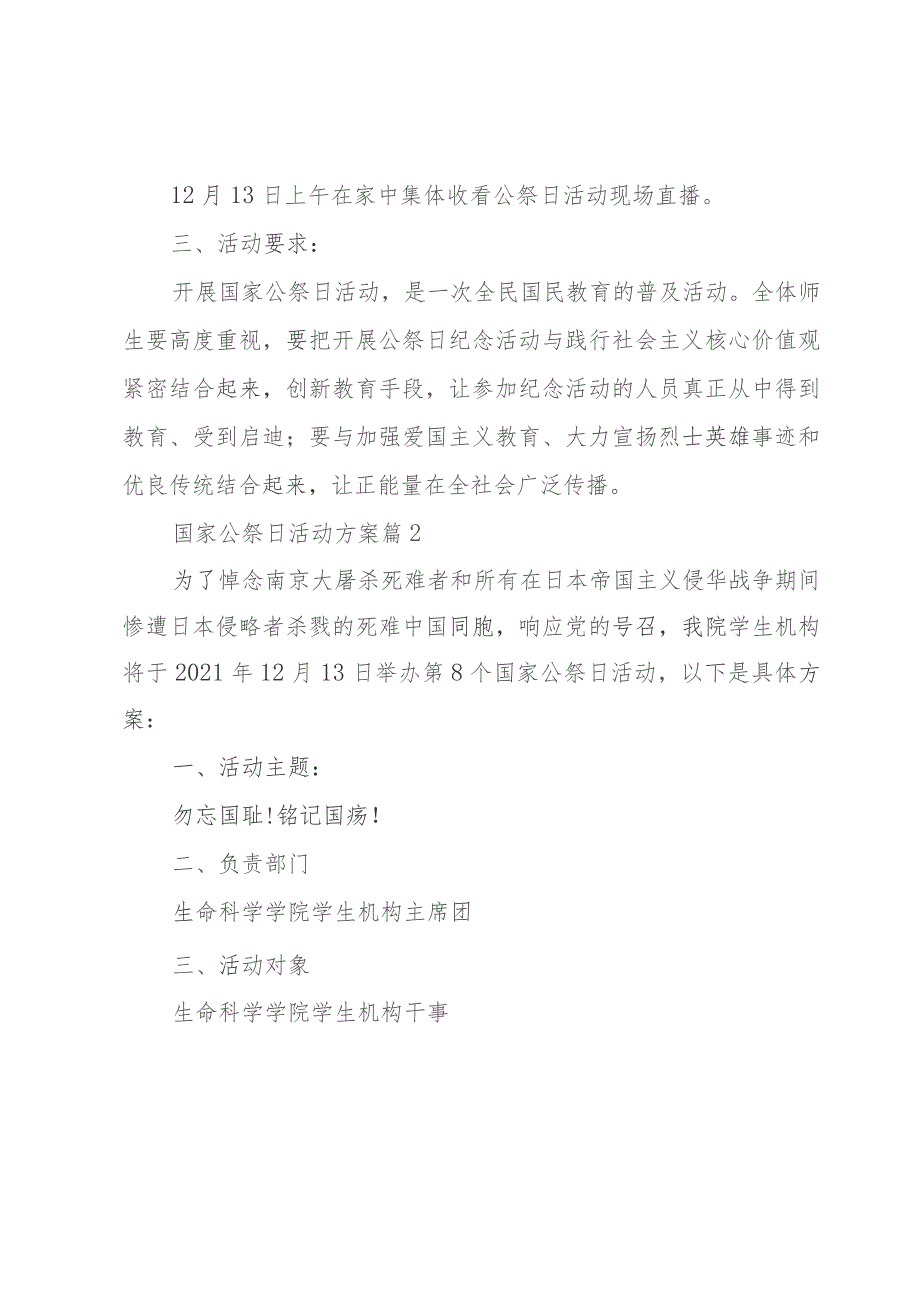 12月13日上午在家中集体收看公祭日活动现场直播。
三、活动要求：
开展国家公祭日活动，是一次全民国民教育的普及活动。全体师
生要高度重视，要把开展公祭日纪念活动与践行社会主义核心价值观
紧密结合起来，创新教育手段，让参加纪念活动的人员真正从中得到
教育、受到启迪；要与加强爱国主义教育、大力宣扬烈士英雄事迹和
优良传统结合起来，让正能量在全社会广泛传播。
国家公祭日活动方案篇2
为了悼念南京大屠杀死难者和所有在日本帝国主义侵华战争期间
惨遭日本侵略者杀戮的死难中国同胞，响应党的号召，我院学生机构
将于2021年12月13日举办第8个国家公祭日活动，以下是具体方
案：
一、活动主题：
勿忘国耻!铭记国殇!
二、负责部门
生命科学学院学生机构主席团
三、活动对象
生命科学学院学生机构干事